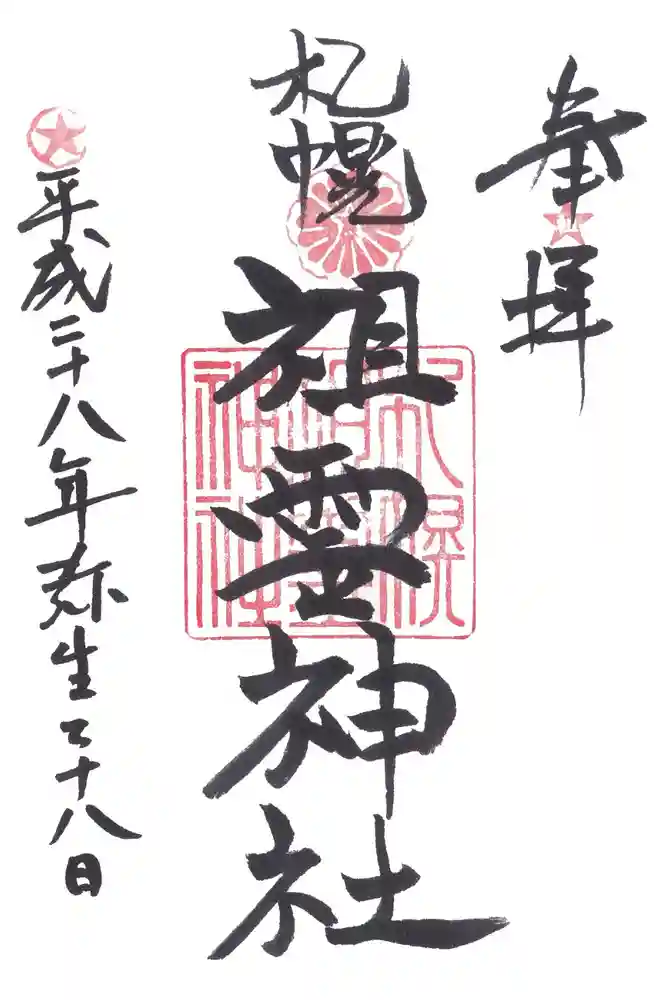 奉拝
札幌
祖霊神社
平成二十八年弥生二十八日
札幌祖霊神社